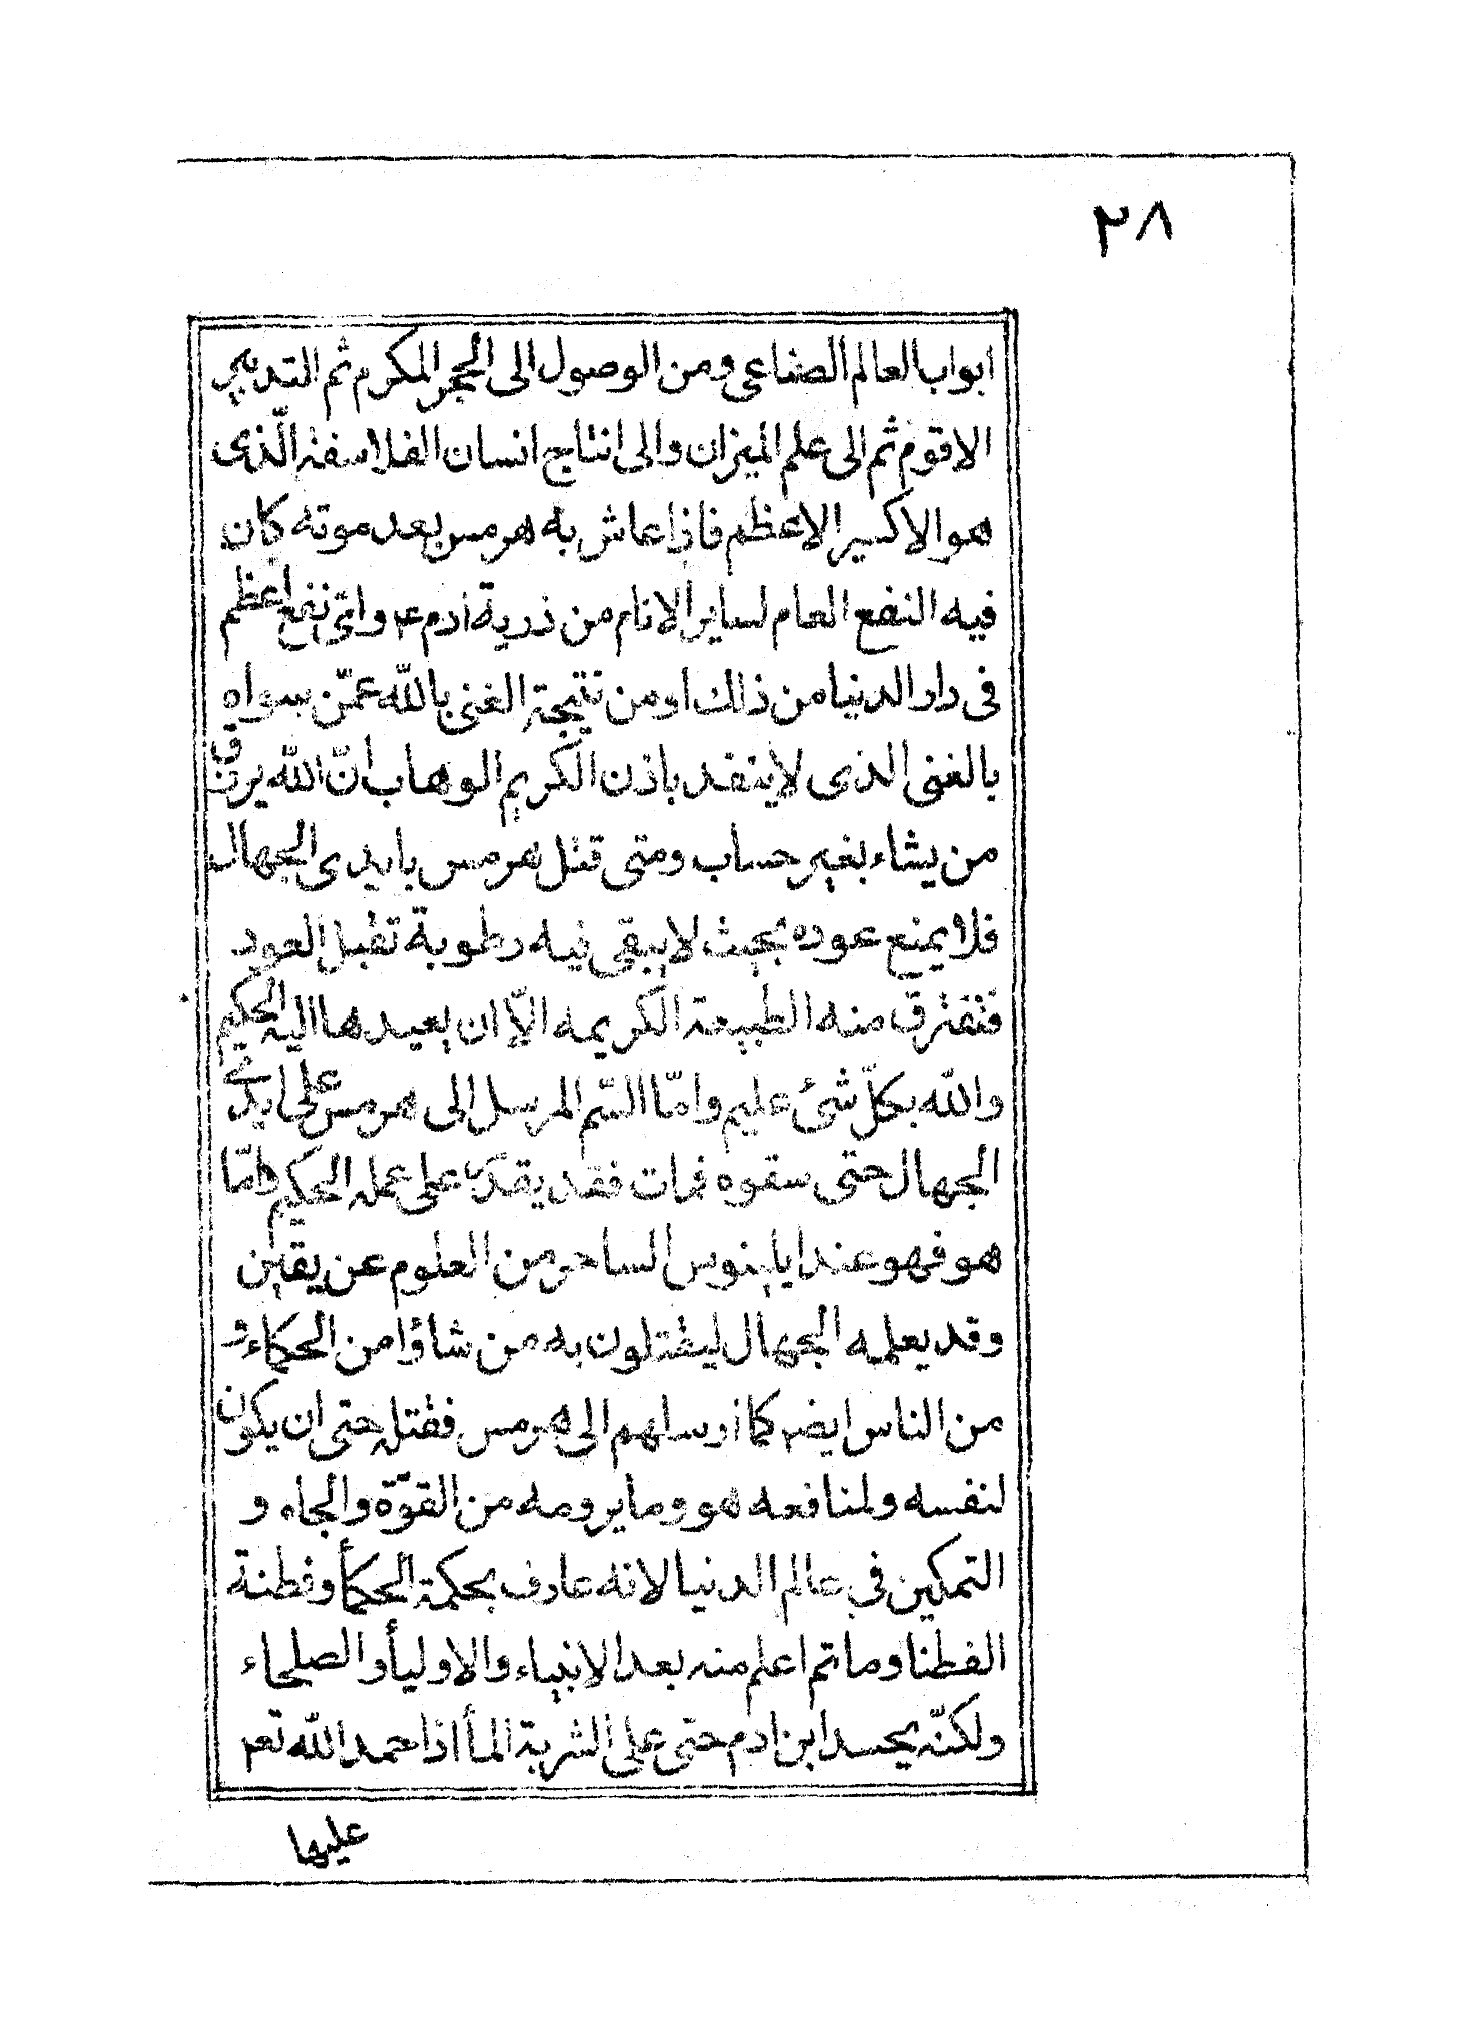 ٢٨
ابواب العالم الصناعى ومن الوصول الى الحجر المكرم ثم التدبير
الاقوم ثم الى علم الميزان والى انتاج انسان الفلاسفة الّذى
هو الاكسير الاعظم فاذا عاش به هرمس بعد موته كان
فيه النفع العام لساير الانام من ذرية ادم ع واىّ نفع اعظم
فى دار الدنيا من ذلك او من نتيجة الغنى بالله عمّن سواه
بالغنى الذى لا ينفد باذن الكريم الوهاب انّ الله يرزق
من يشاء بغير حساب ومتى قتل هرمس بايدى الجهال
فلا يمنع عوده بحيث لا يبقى فيه رطوبة تقبل العود
فتفترق منه الطبيعة الكريمه الّا ان يعيدها اليه الحكيم
والله بكلّ شئ عليم وامّا السّم المرسل الى هرمس على ايدى
الجهال حتى سقوه فمات فقد يقدّر على عمله الحكيم وامّا
هو فهو عند ايلينوس الساحر من العلوم عن يقين
وقد يعلمه الجهال ليقتلون به من شاؤا من الحكماء و
من الناس ايضه كما ارسلهم الى هرمس فقتله حتى ان يكون
لنفسه ولمنافعه هو وما يرومه من القوّة والجاه و
التمكين فى عالم الدنيا لانه عارف بحكمة الحكمأ وفطنة
الفطنا وما ثم اعلم منه بعد الانبياء والاوليأ والصلحاء
ولكنّه يحسد ابن ادم حتى على الشربة المأ اذا حمد الله تعم
عليها